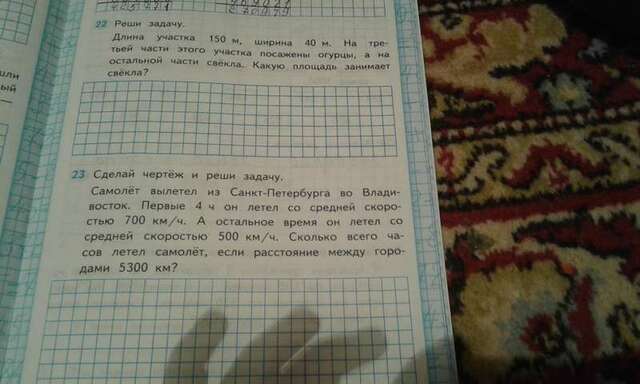 22 Реши задачу.
Длина участка 150 м, ширина 40 м. На тре-
тьей части этого участка посажены огурцы, а на
остальной части свёкла. Какую площадь занимает
свёкла?
23 Сделай чертёж и реши задачу.
Самолёт вылетел из Санкт-Петербурга во Влади-
восток. Первые 4 ч он летел со средней скоро-
стью 700 км/ч. А остальное время он летел со
средней скоростью 500 км/ч. Сколько всего ча-
сов летел самолёт, если расстояние между горо-
дами 5300 км?